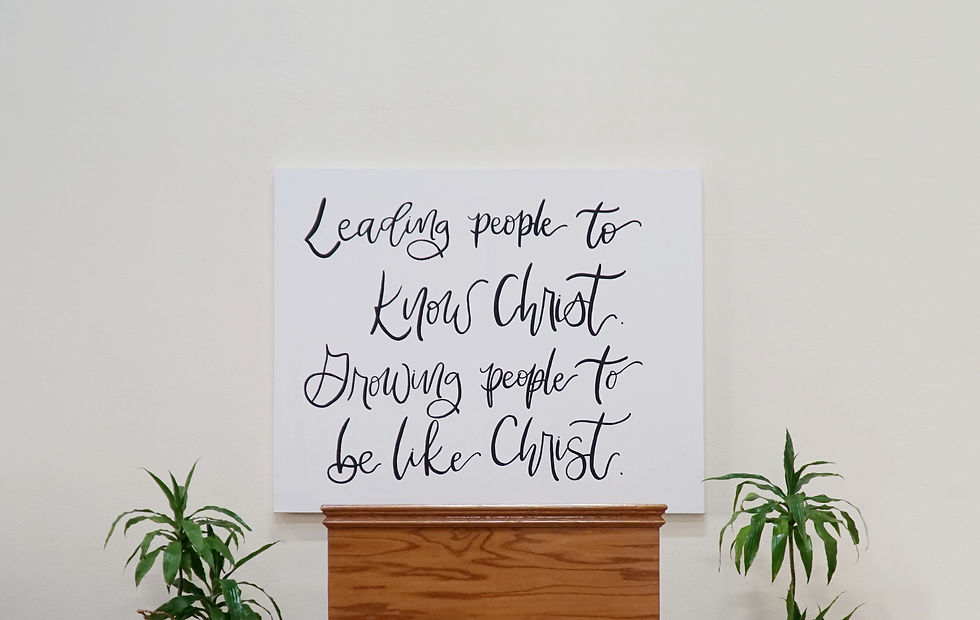 Leading people to
Know Christ.
Growing people to
be like Christ.